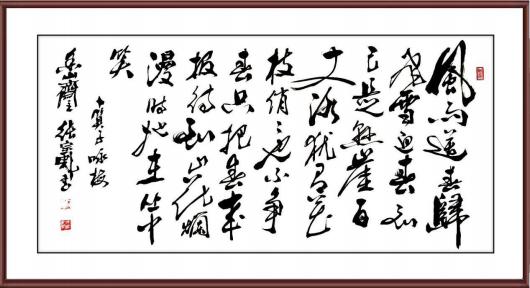 風雨送春歸
飛雪迎春到
已是懸崖百
丈冰猶有花
枝俏〻也不争
春只把春来
报待到山花爛
漫時她在丛中
笑
卜算子咏梅
書